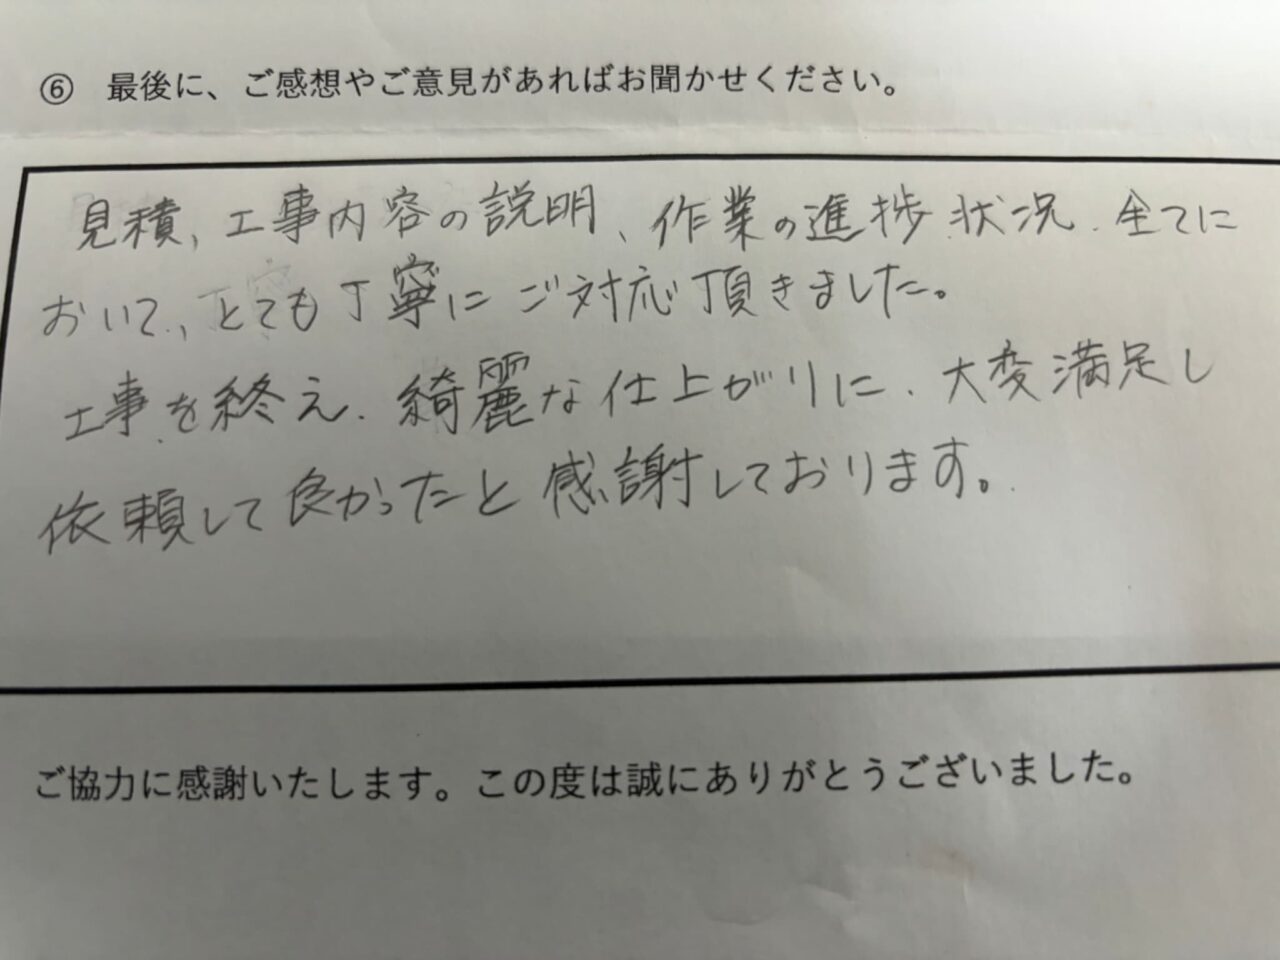 ⑥ 最後に、ご感想やご意見があればお聞かせください。
見積、工事内容の説明、作業の進捗状況、全てに
おいて、とても丁寧にご対応頂きました。
工事を終え、綺麗な仕上がりに、大変満足し
依頼して良かったと感謝しております。
ご協力に感謝いたします。この度は誠にありがとうございました。